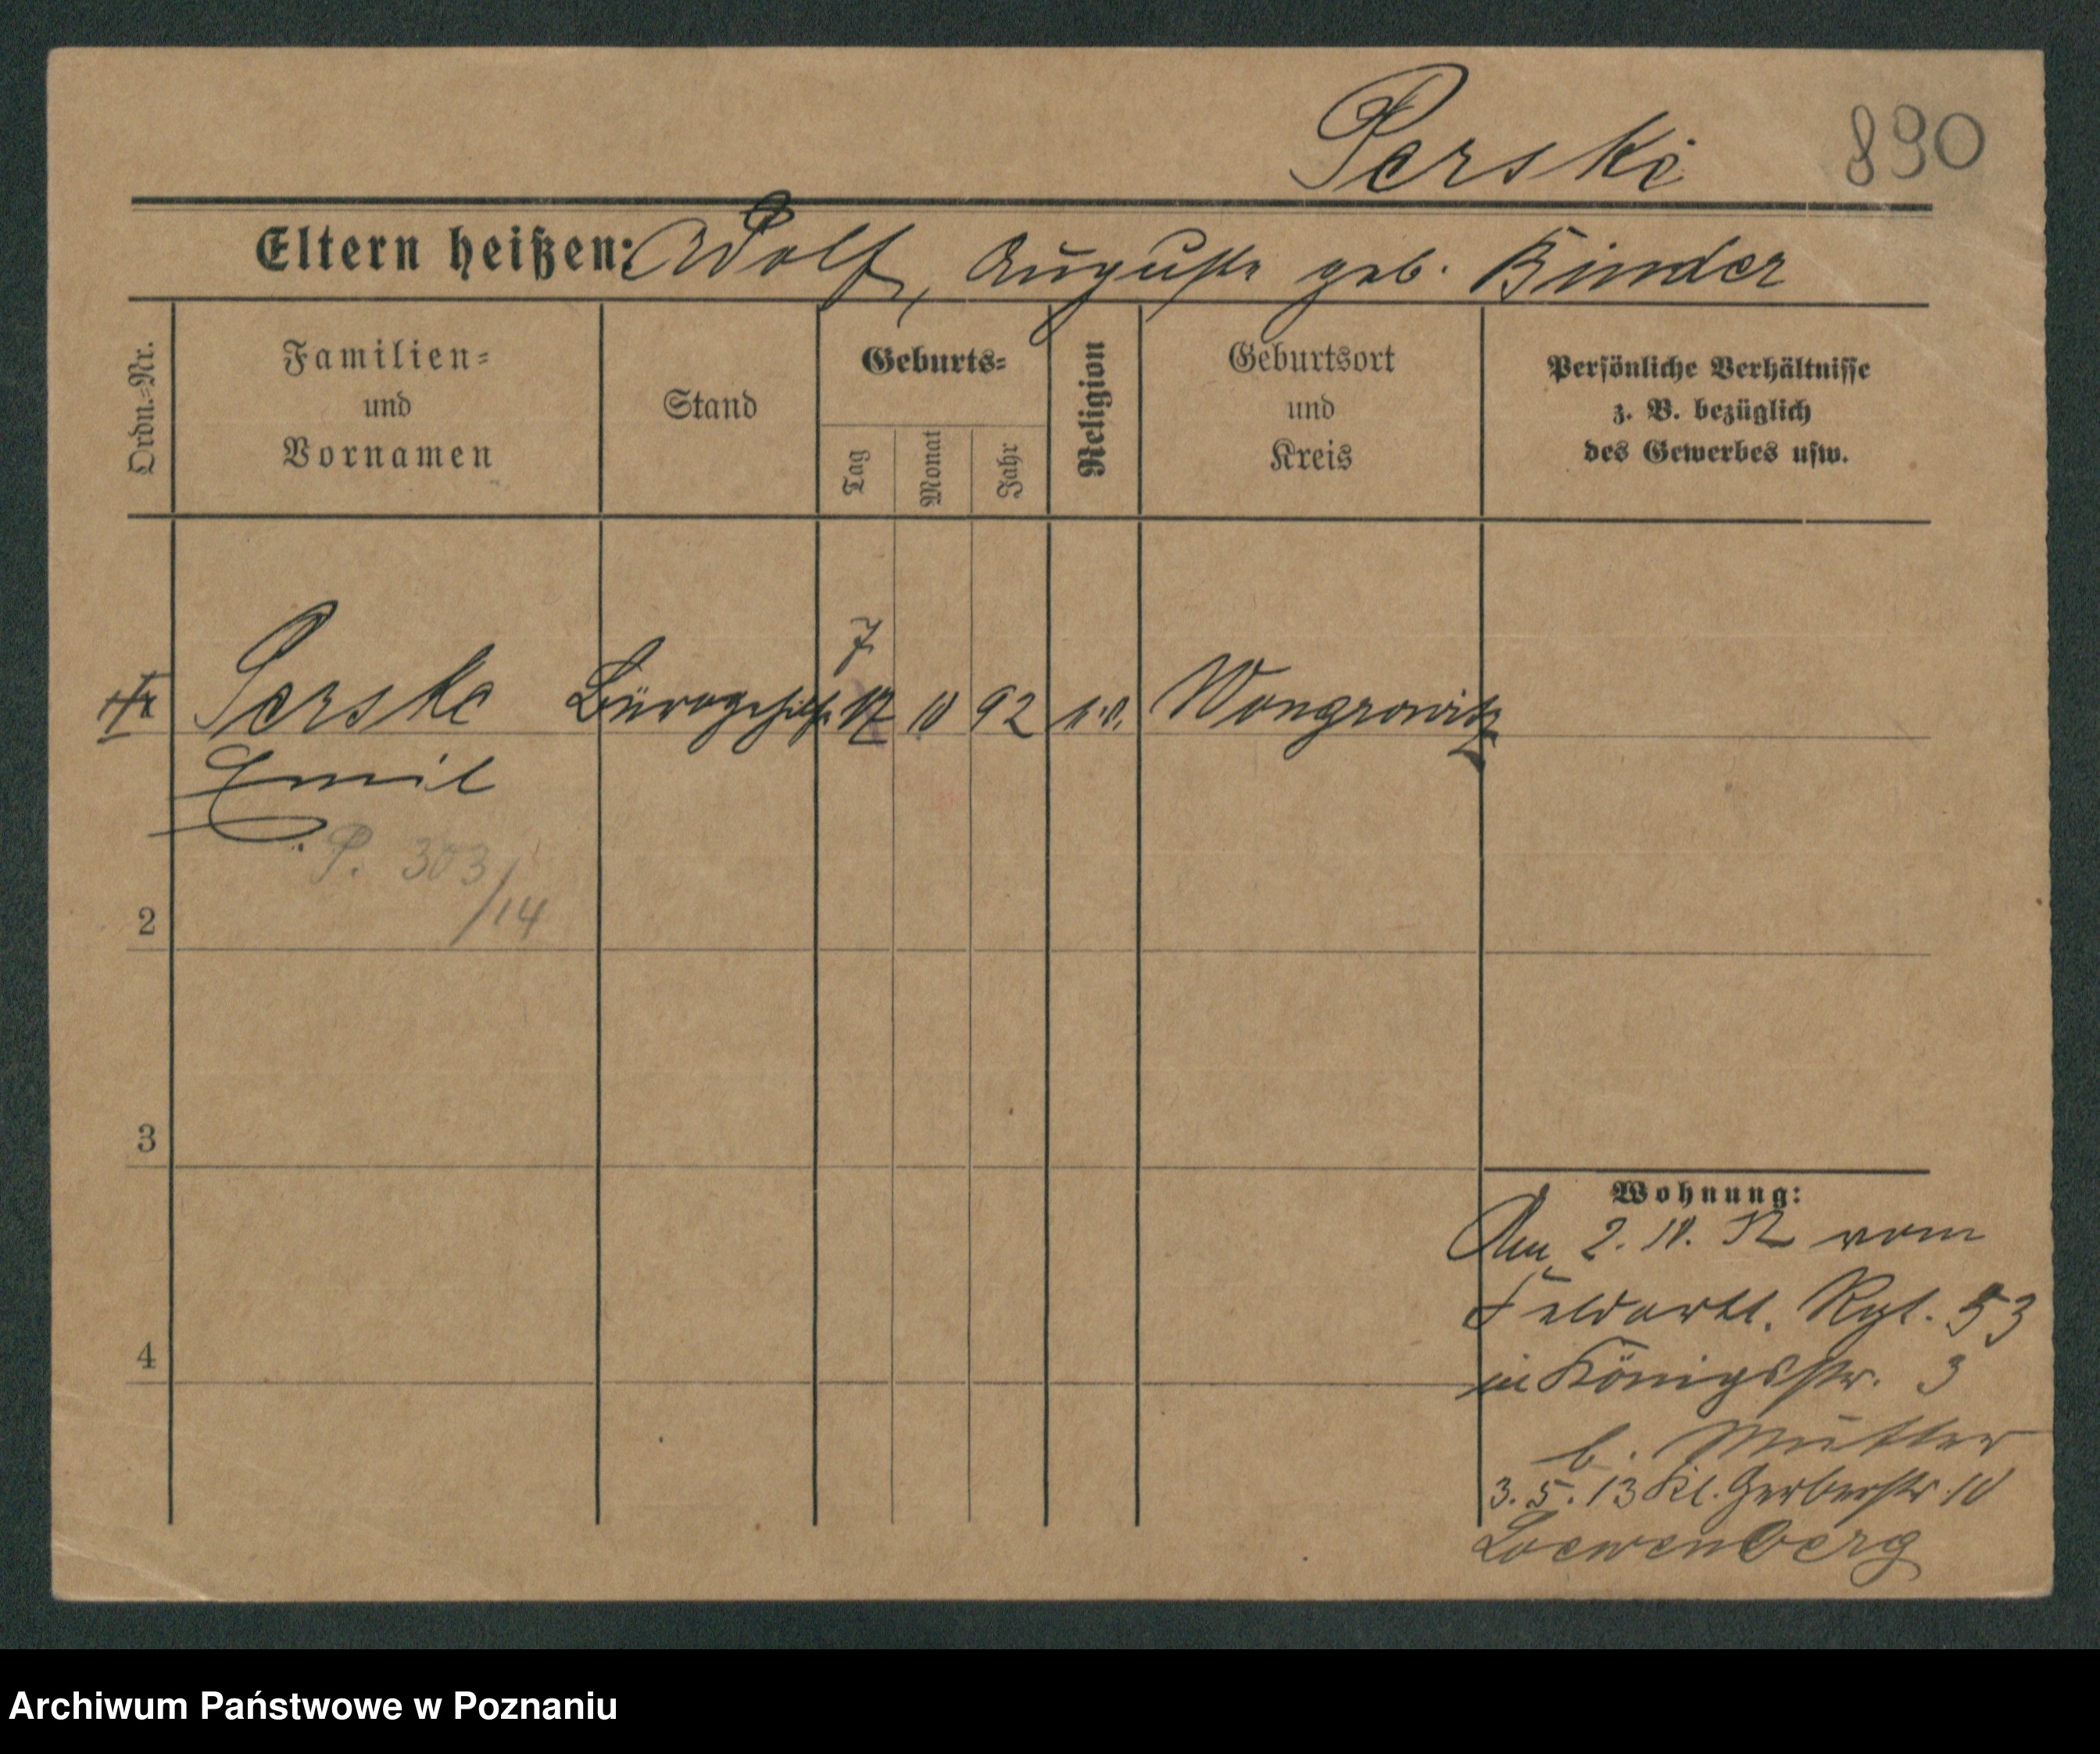 Perske 890
Eltern heißen: Adolf, Auguste geb. Binder
Ordn.-Nr.
Familien-
und
Vornamen
Stand
Geburts-
Tag
Monat
Jahr
Religion
Geburtsort
und
Kreis
Persönliche Verhältnisse
z. B. bezüglich
des Gewerbes usw.
7.
Perske Bürogehilfe 17 10 92 Wongrowitz
Emil
P. 303/14
2
3
4
Wohnung:
Am 2. 10. 12 vom
Feldartl. Rgt. 53
in Königsstr. 3
b. Mutter
3. 5. 13 Kl. Gerberstr. 10
Loewenberg
Archiwum Państwowe w Poznaniu